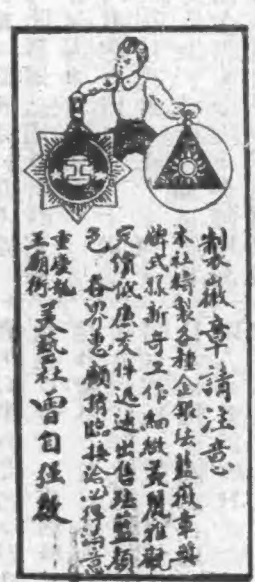 製徽章請注意
本社特製各種金銀琺藍徽章獎
牌式樣新奇工作細緻美麗雅觀
定價低廉交件迅速出售琺藍顏
色各界惠顧請臨接洽必得滿意
重慶龍
王廟街
美藝社曾自強啟
工